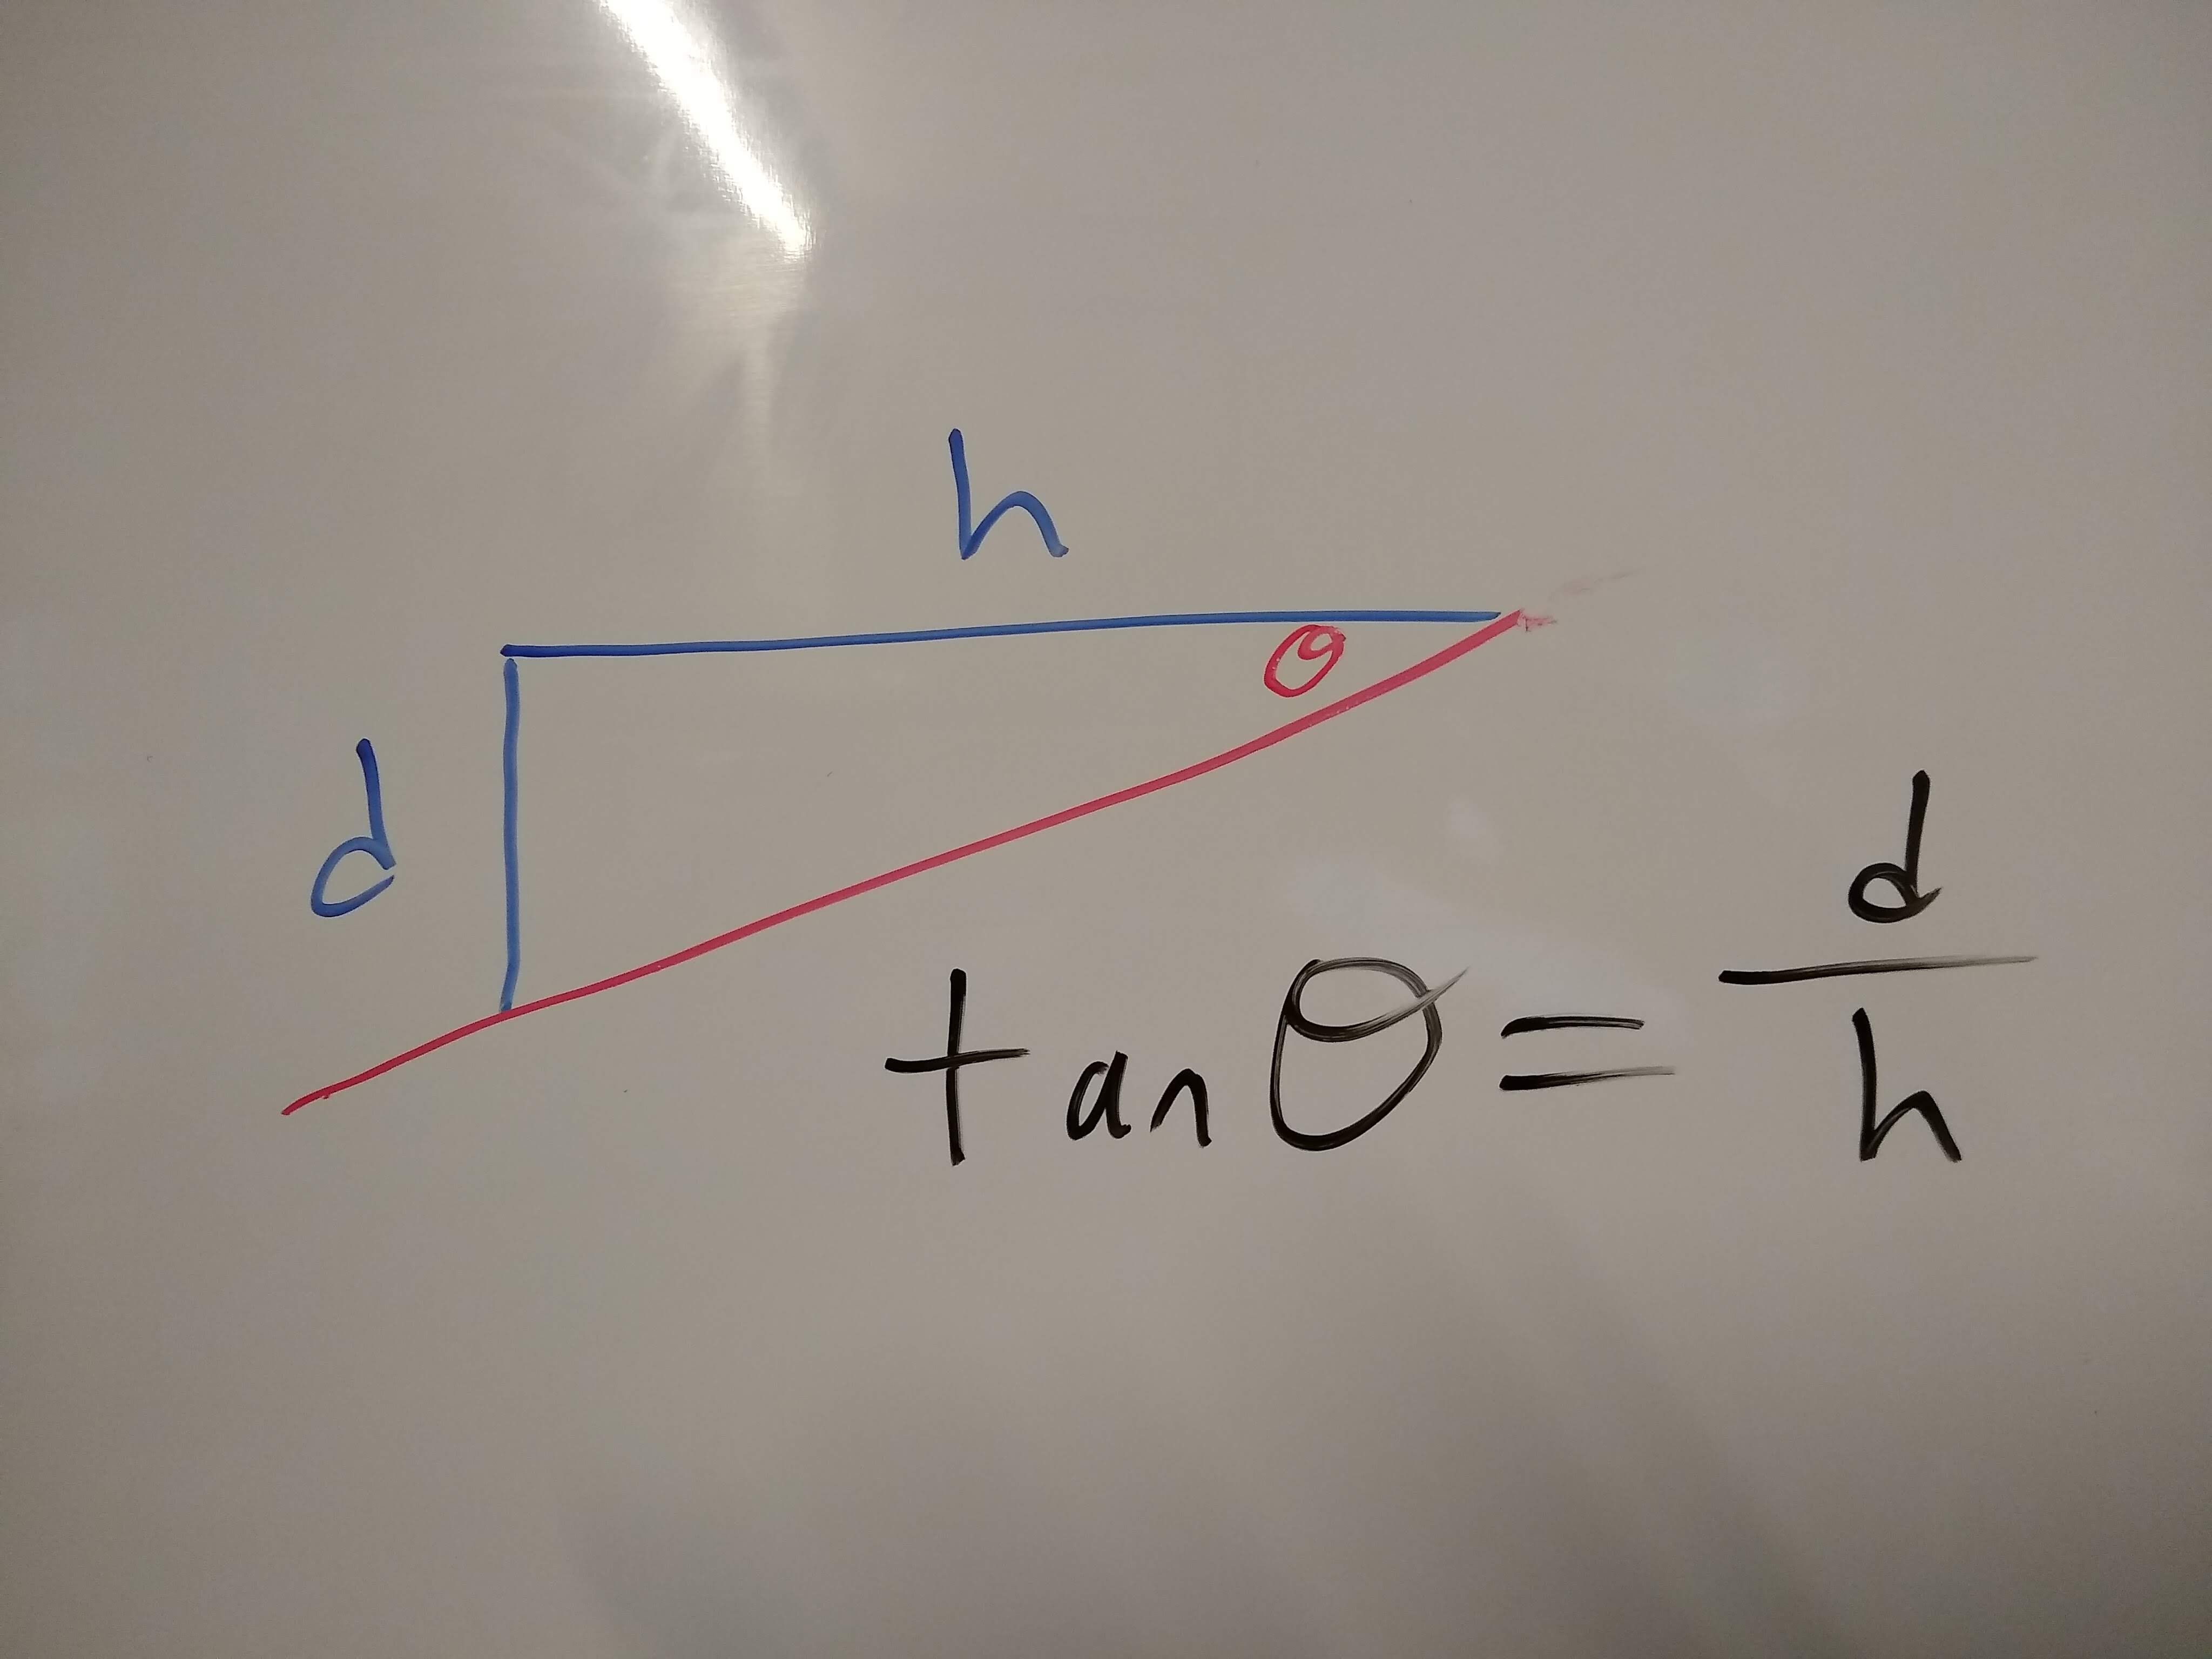 h
θ
d
tan θ = d/h